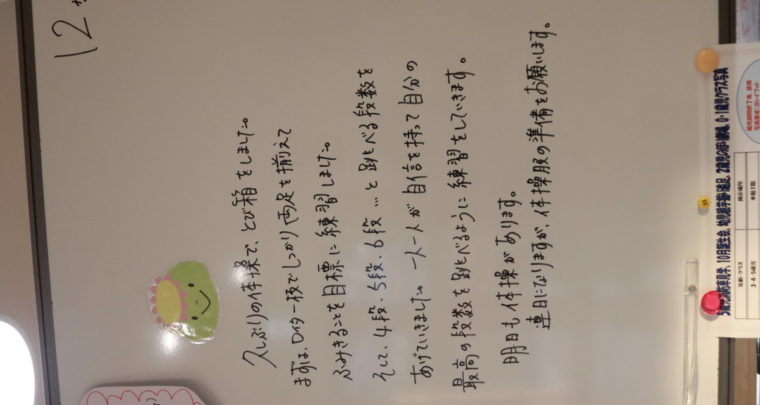 12
久しぶりの体操で、とび箱をしました。
まずは、ロイター板でしっかり両足を揃えて
ふみきることを目標に練習しました。
そして、4段、5段、6段…と跳べる段数を
あげていきました。一人一人が自信を持って自分の
最高の段数を跳べるように練習をしていきます。
明日も体操があります。
連日になりますが、体操服の準備をお願いします。